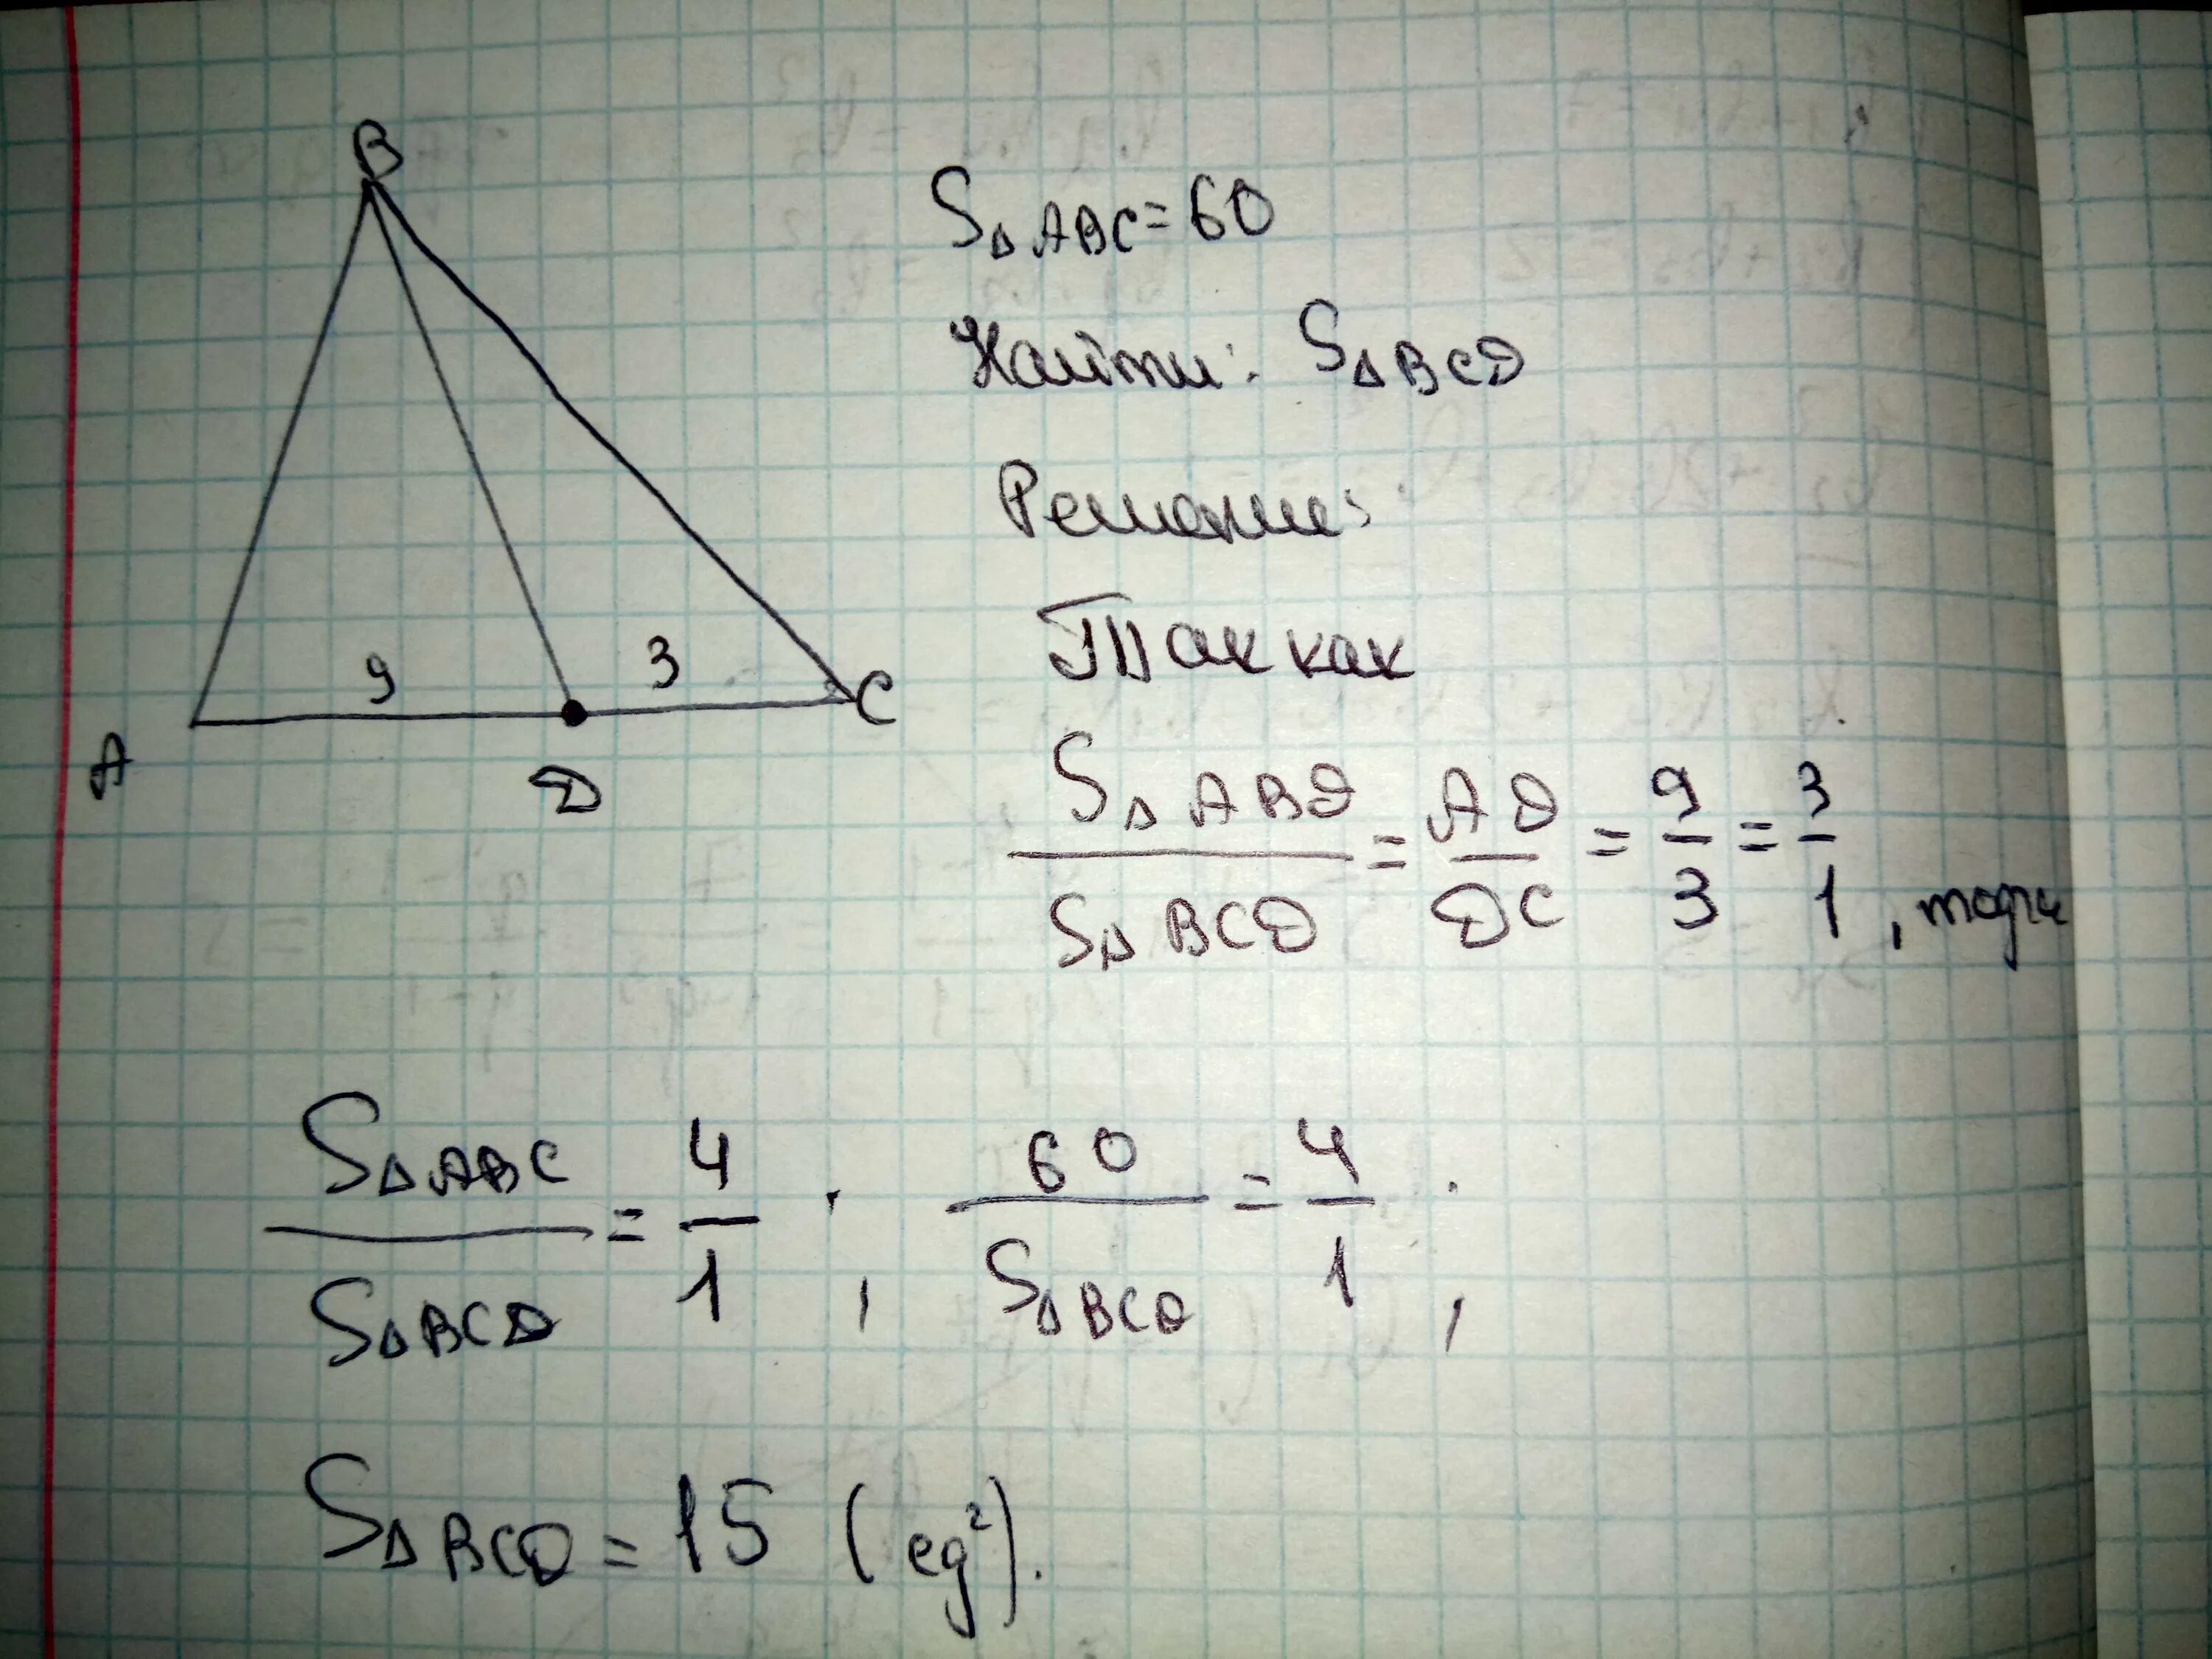 B
9
3
A
D
C
S△ABC=60
Найти: S△BCD
Решение:
Так как
S△ABD / S△BCD = AD / DC = 9/3 = 3/1, тогда
S△ABC / S△BCD = 4/1; 60 / S△BCD = 4/1;
S△BCD = 15 (ед²).